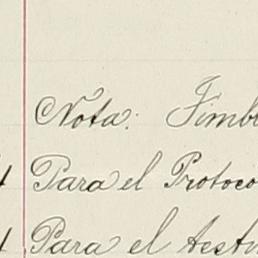 Nota: Timb
Para el Protoco
Para el testi